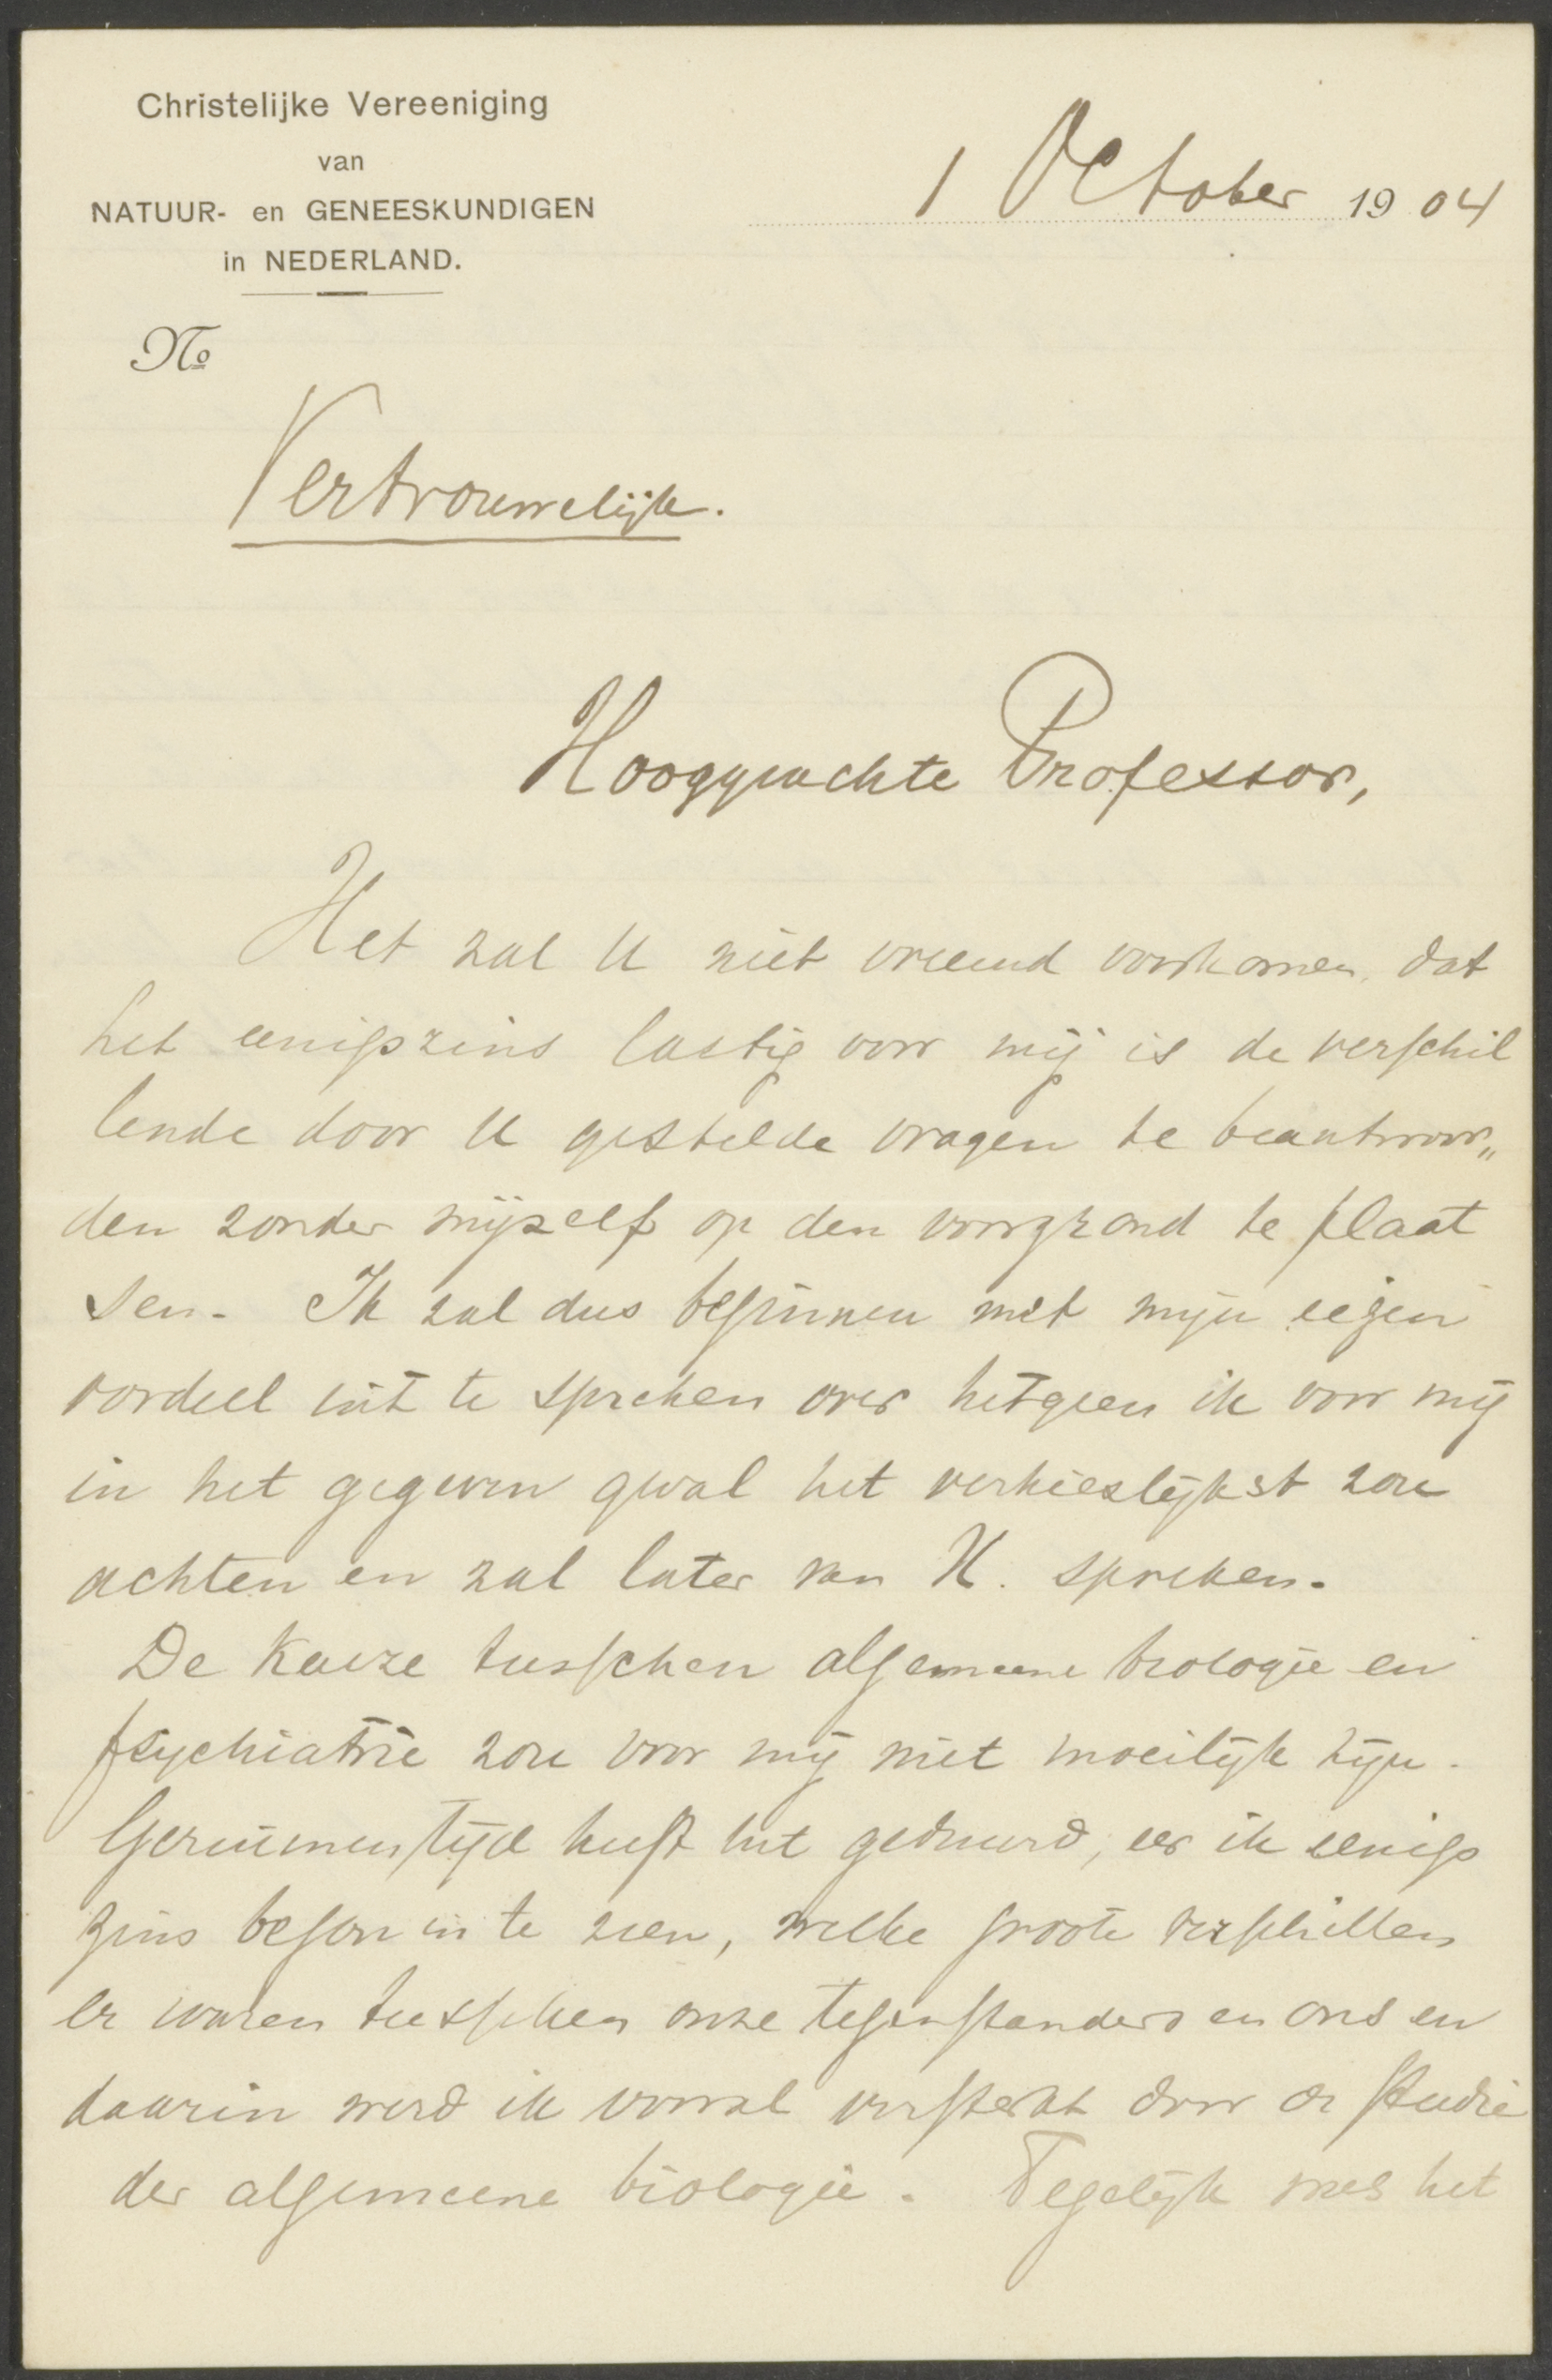 Christelijke Vereeniging
van
NATUUR- en GENEESKUNDIGEN
in NEDERLAND.
1 October 1904
No
Vertrouwelijk.
Hooggeachte Professor,
Het zal U niet vreemd voorkomen, dat
het eenigszins lastig voor mij is de verschil
lende door U gestelde vragen te beantwoor„
den zonder mijzelf op den voorgrond te plaat
sen. Ik zal dus beginnen met mijn eigen
oordeel uit te spreken over hetgeen ik voor mij
in het gegeven geval het verkieslijkst zou
achten en zal later van H. spreken.
De keuze tusschen algemeene biologie en
psychiatrie zou voor mij niet moeilijk zijn.
Geruimen tijd heeft het geduurd, eer ik eenigs
zins begon in te zien, welke groote verschillen
er waren tusschen onze tegenstanders en ons en
daarin werd ik vooral versterkt door de studie
der algemeene biologie. Tegelijk met het